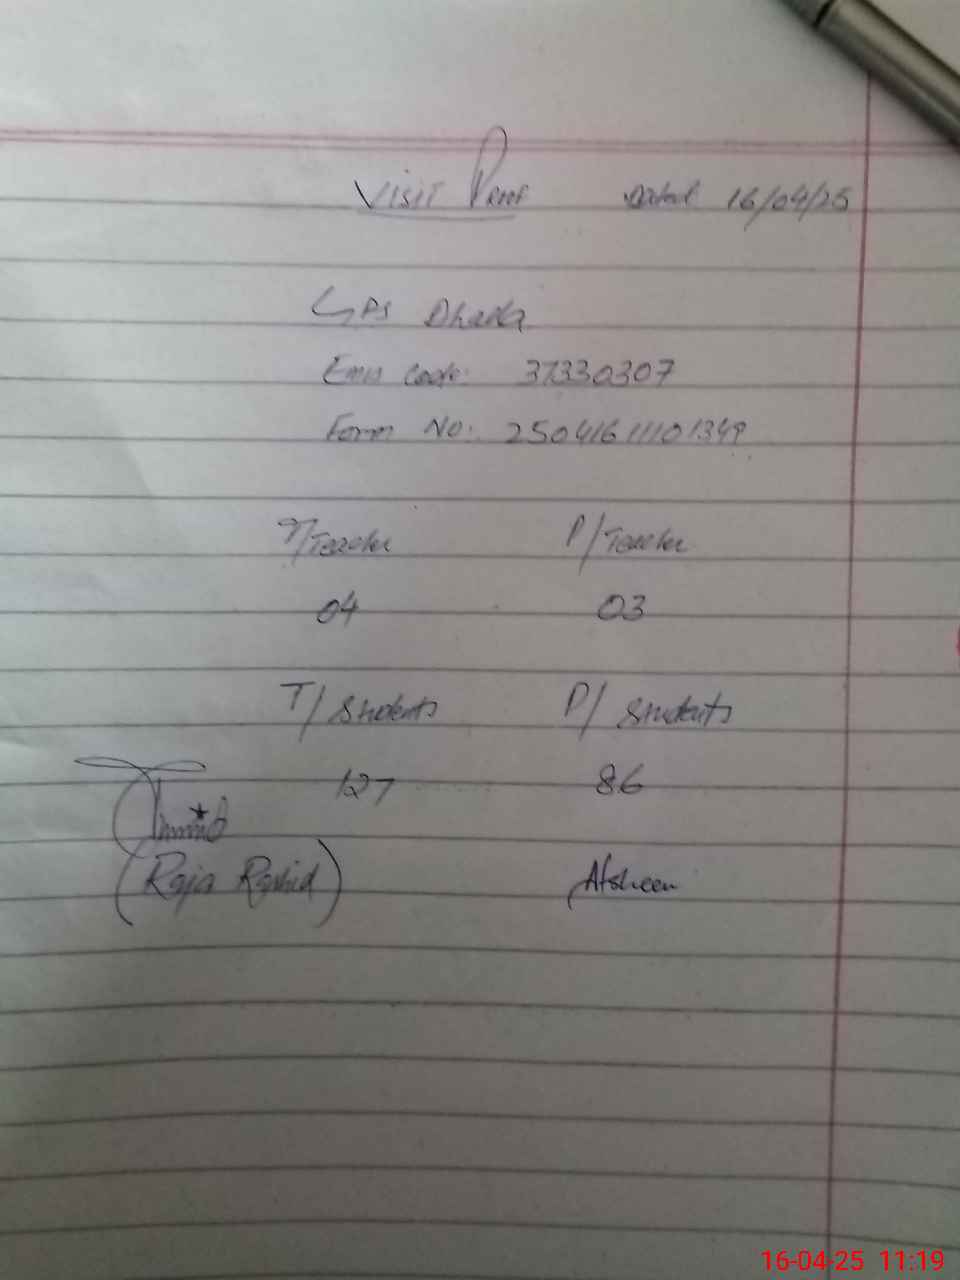 Visit Proof Dated 16/04/25
GPS Dhada
Emis Code: 37330307
Form No: 25041611101349
T/Teacher P/Teacher
04 03
T/Students P/Students
127 86
(Raja Rashid) Afsheen
16-04-25 11:19